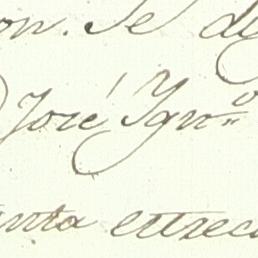 on. Se di
José Ygn.º
nta ettrec